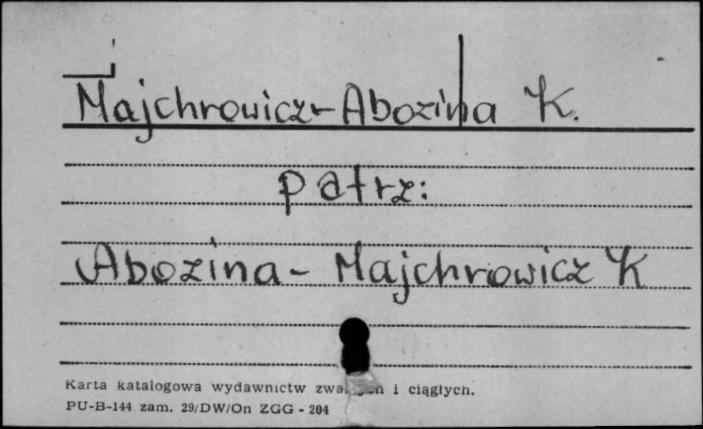 Majchrowicz-Abozina K.
patrz:
Abozina - Majchrowicz K
Karta katalogowa wydawnictw i ciągłych.
PU-B-144 zam. 29/DW/On ZGG - 204